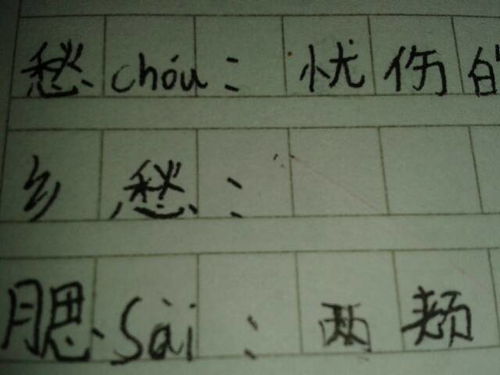 愁chóu：忧伤的
乡愁：
腮sāi：两颊